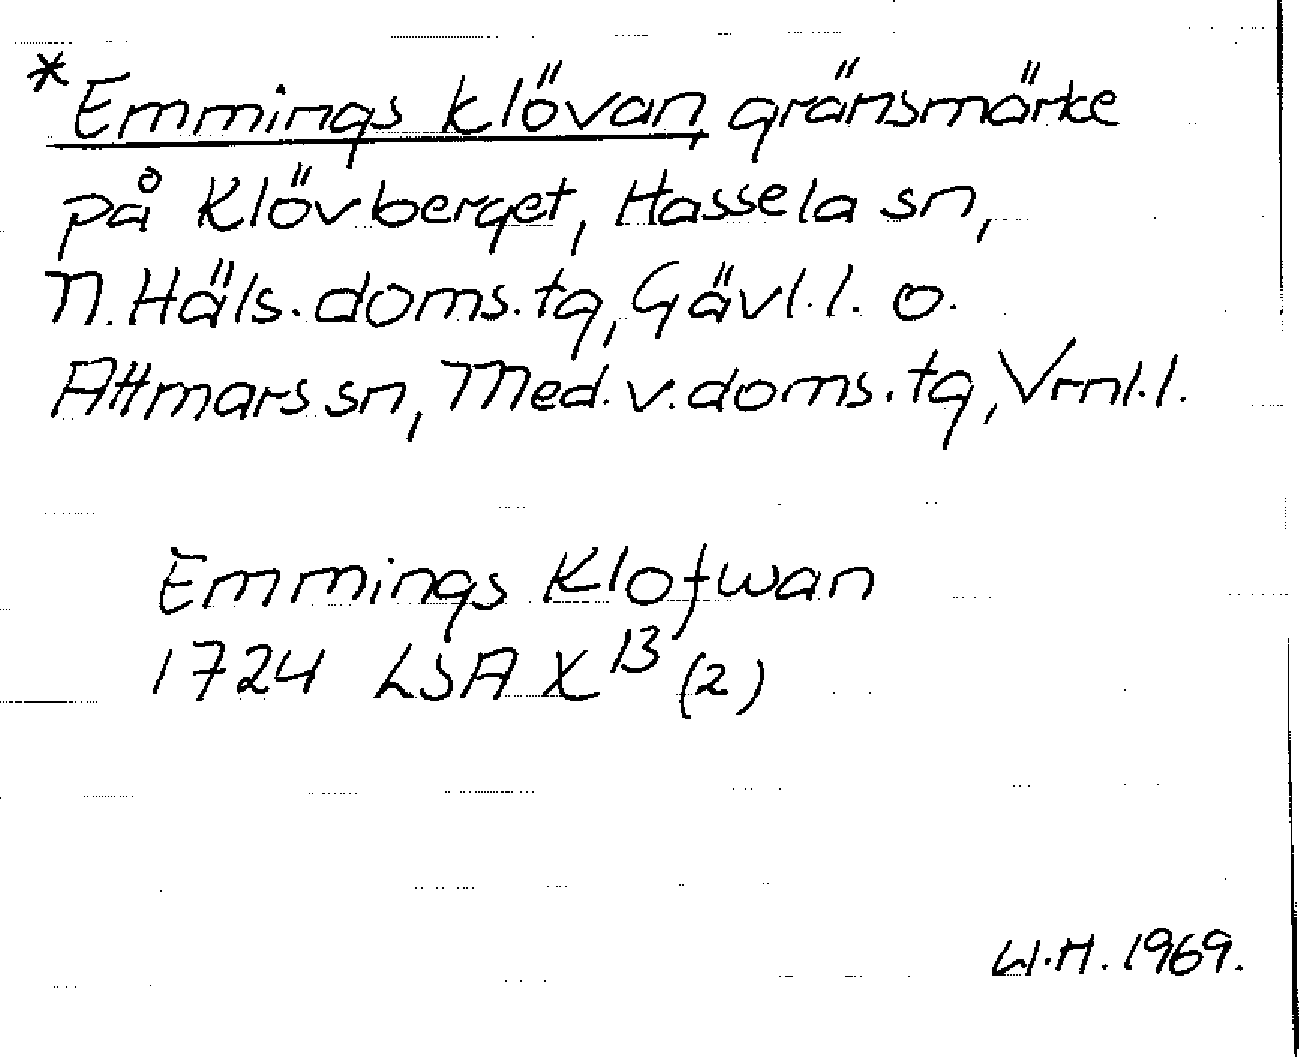 *Emmings klövan, gränsmärke
på Klövberget, Hassela sn,
N. Häls. doms. tg, Gävl. l. o.
Attmars sn, Med. v. doms. tg, Vrnl. l.
Emmings Klofwan
1724 LSA X 13 (2)
W.H. 1969.